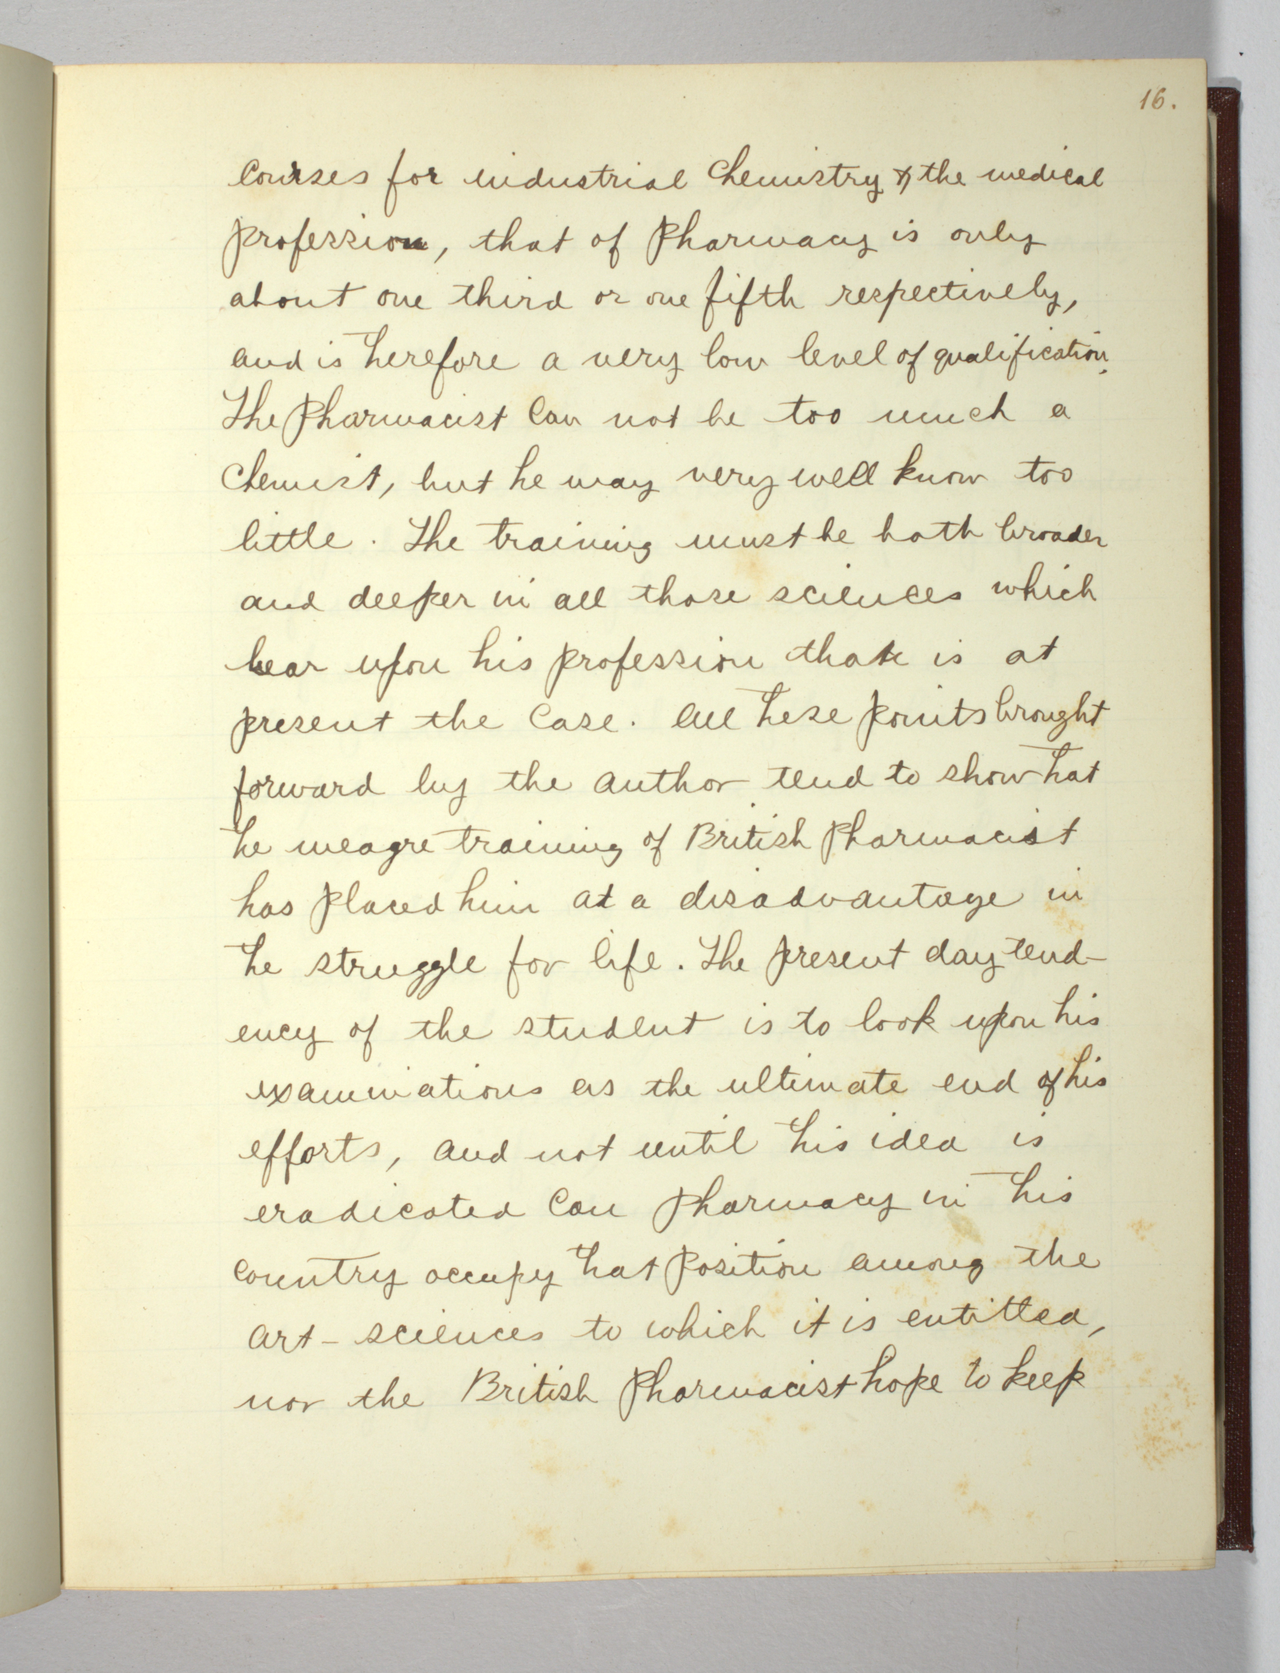 16.
Courses for industrial Chemistry & the medical
profession, that of Pharmacy is only
about one third or one fifth respectively,
and is therefore a very low level of qualification.
The Pharmacist Can not be too much a
Chemist, but he may very well know too
little. The training must be both broader
and deeper in all those sciences which
bear upon his profession than is at
present the Case. All these points brought
forward by the author tend to show that
the meagre training of British Pharmacist
has placed him at a disadvantage in
the struggle for life. The present day tend-
ency of the student is to look upon his
examinations as the ultimate end of his
efforts, and not until this idea is
eradicated Can Pharmacy in this
Country occupy that position among the
art-sciences to which it is entitled,
nor the British Pharmacist hope to keep